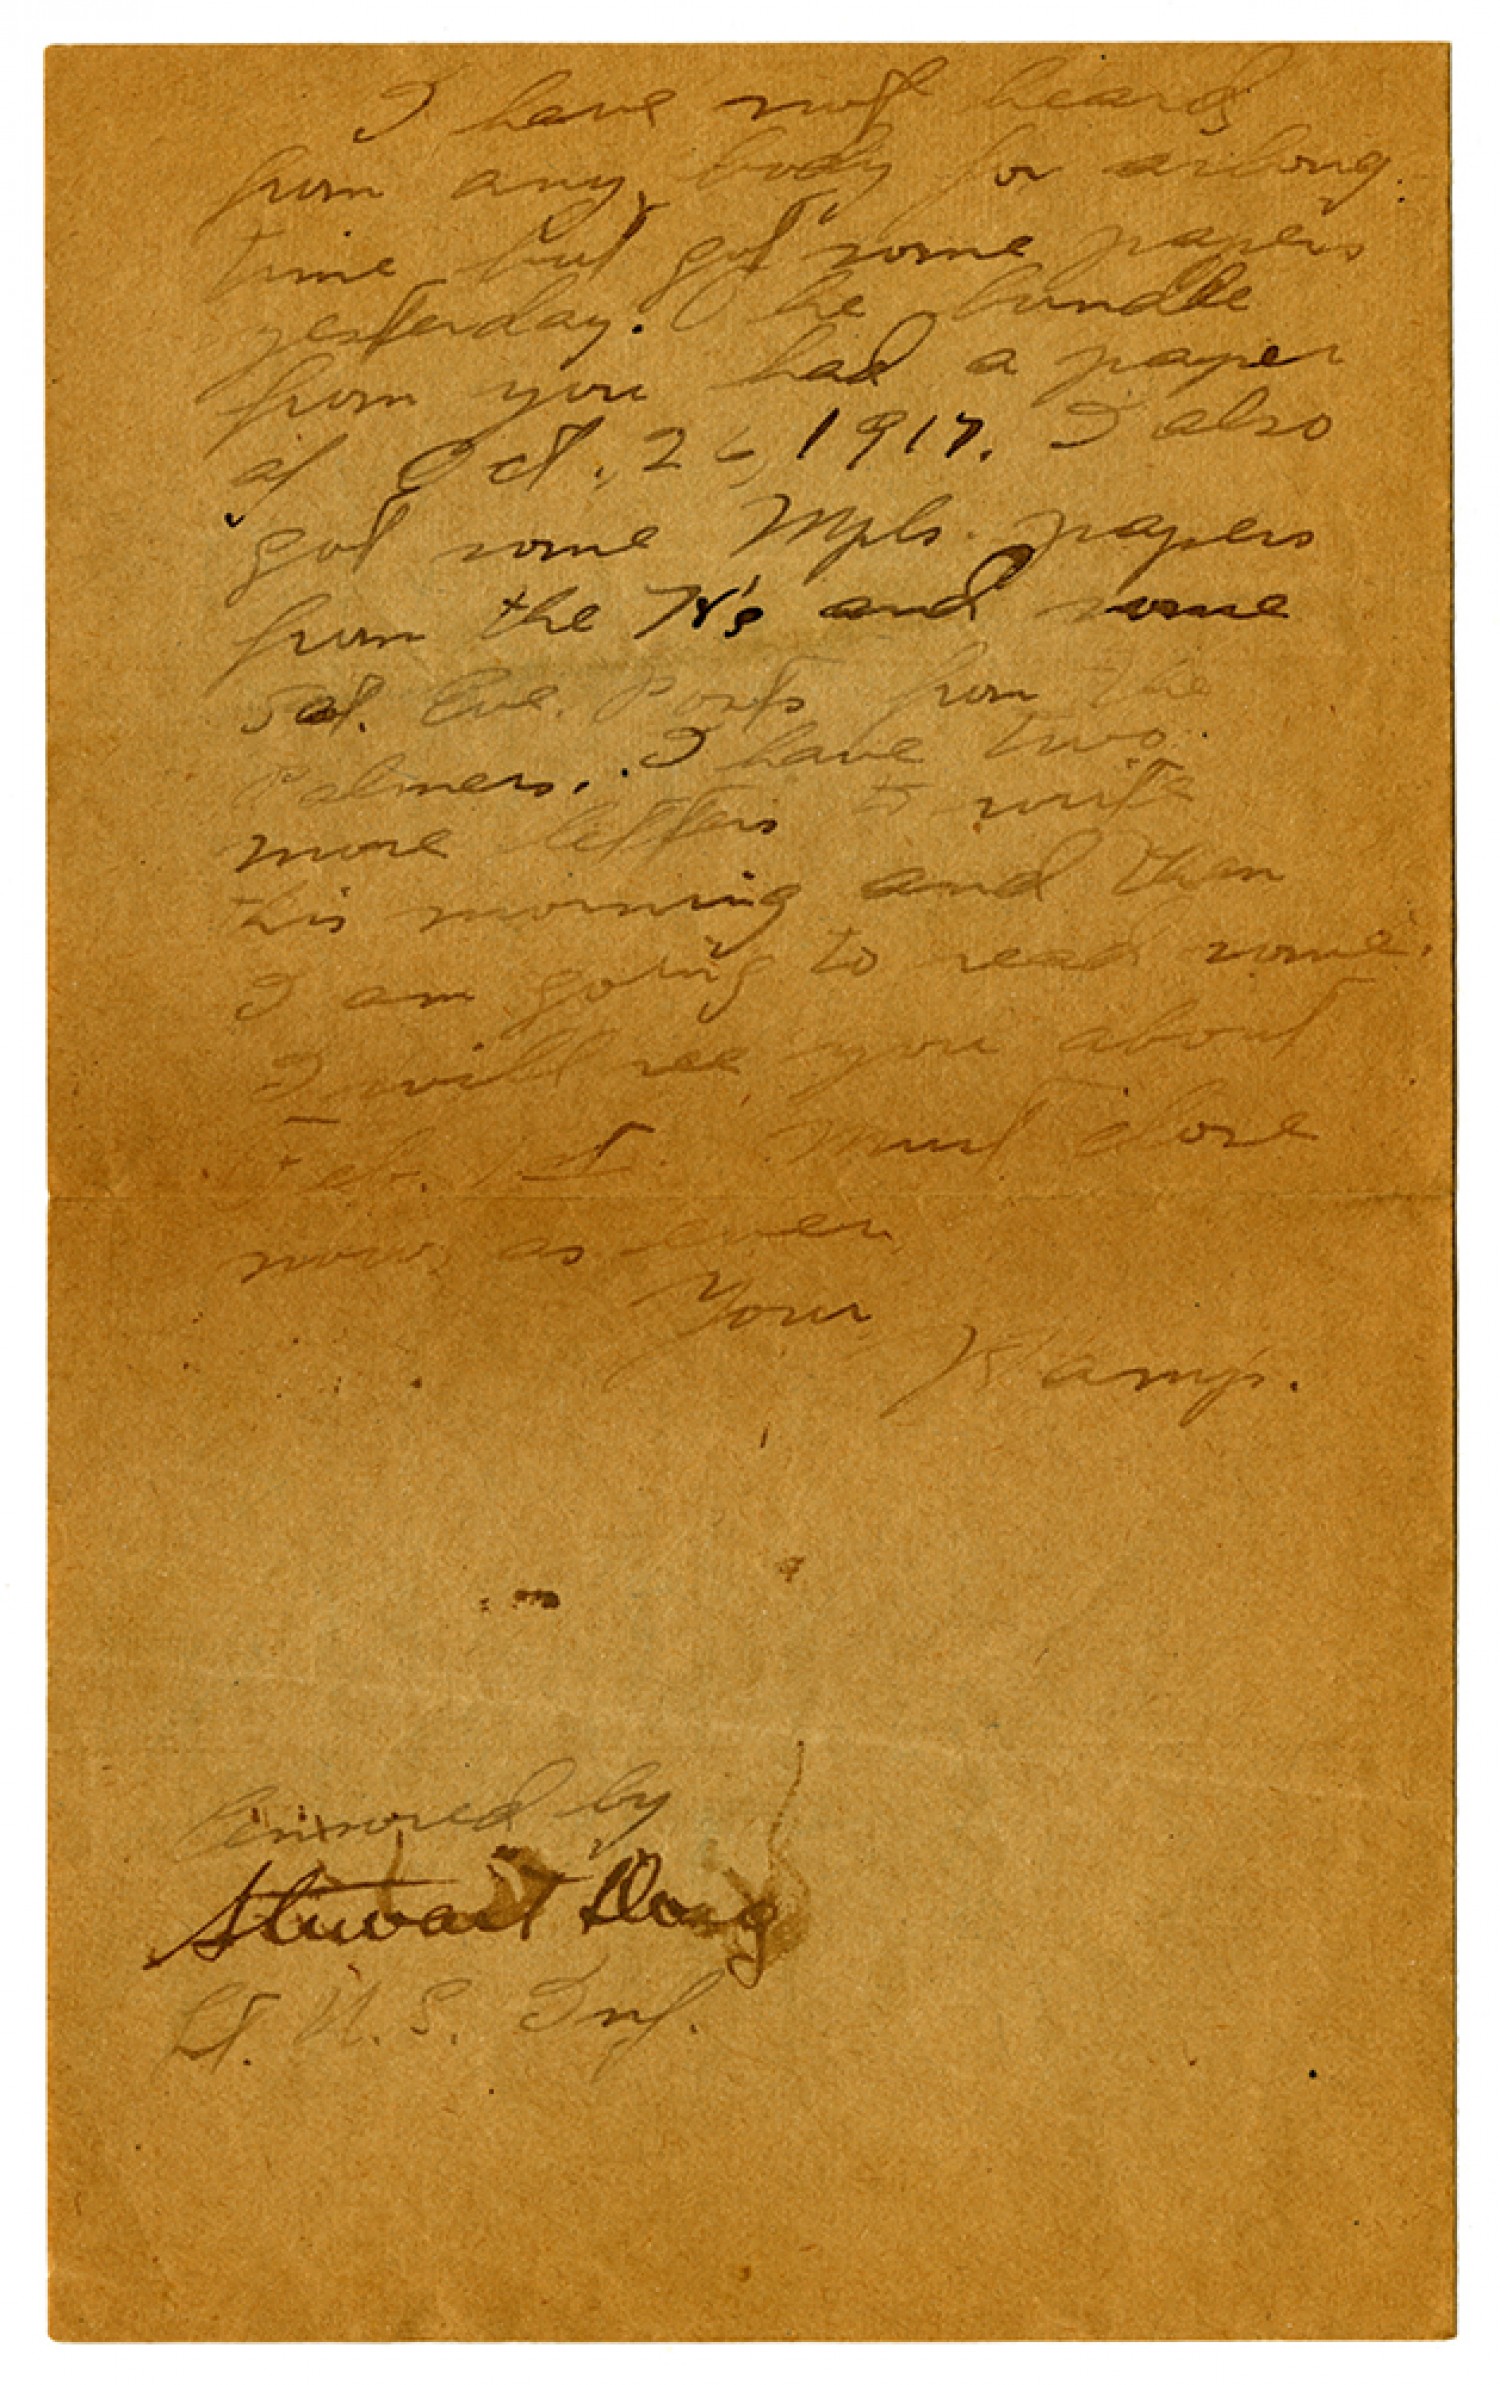 I have not heard
from any body for a long
time but got some papers
yesterday. The bundle
from you had a paper
of Oct. 26, 1917. I also
got some Mpls. papers
from the K's and some
Sat. Eve. Posts from the
Palmers. I have two
more letters to write
this morning and then
I am going to read some.
I will see you about
Feb. 1st. Must close
now, as ever,
Your
Kamp.
Censored by
Stewart
Lt. U. S. Inf.